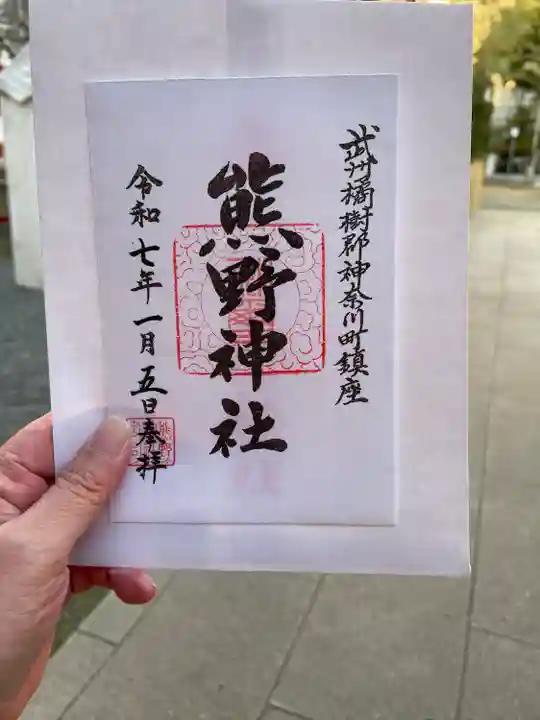 武州橘樹郡神奈川町鎮座
熊野神社
令和七年一月五日奉拝